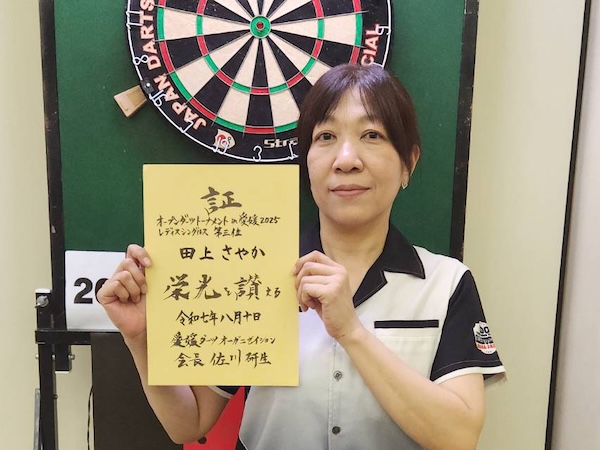 JAPAN DARTS
CIAL
証
オープンダーツトーナメント in 愛媛 2025
レディスシングルス 第三位
田上 さやか
栄光を讃える
令和七年八月十日
愛媛ダーツオーガニゼイション
会長 佐川 研生